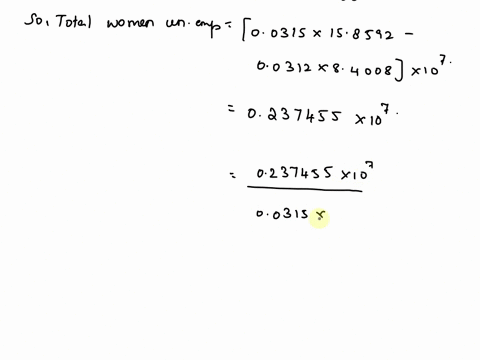 So, Total women un.emp = [0.0315 × 15.8592 -
0.0312 × 8.4008] × 10^7.
= 0.237455 × 10^7.
= 0.237455 × 10^7
0.0315 ×